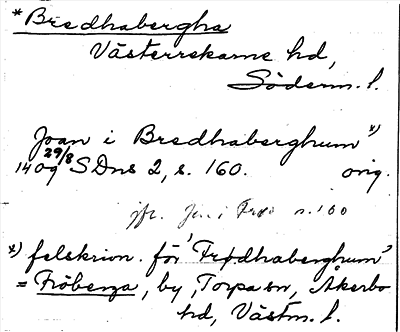 *Bredhabergha
Västerrekarne hd,
Söderm. l.
Joan i Bredhaberghum" x)
1409 29/8 SDns 2, s. 160. orig.
jfr. Jon i s. 160
x) felskrivn. för "Frødhaberghum"
= Fröberga, by, Torpa sn, Åkerbo
hd, Västm. l.